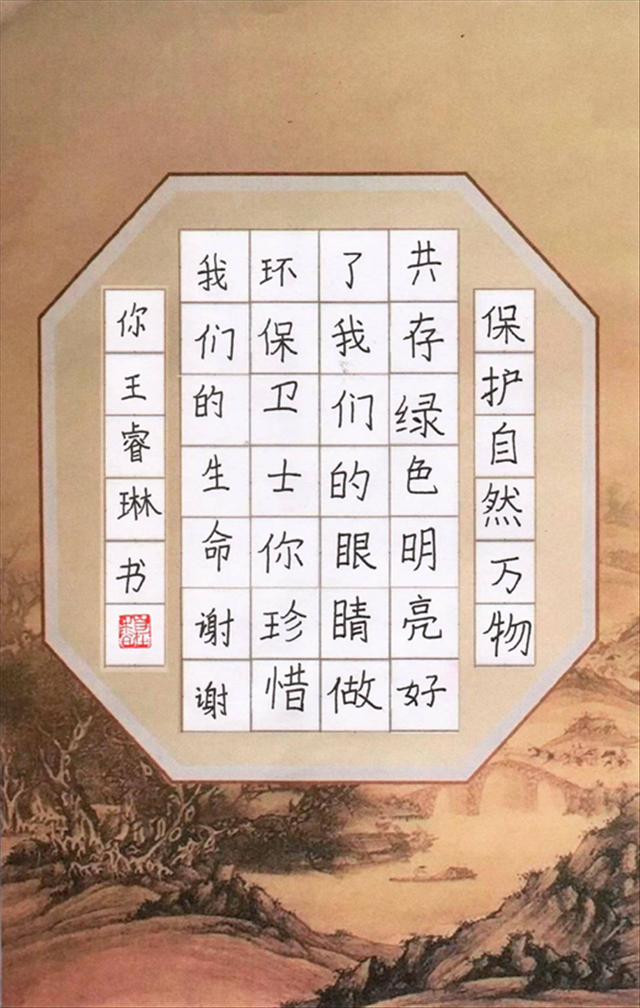 保护自然万物
共存绿色明亮好
了我们的眼睛做
环保卫士你珍惜
我们的生命谢谢
你王睿琳书